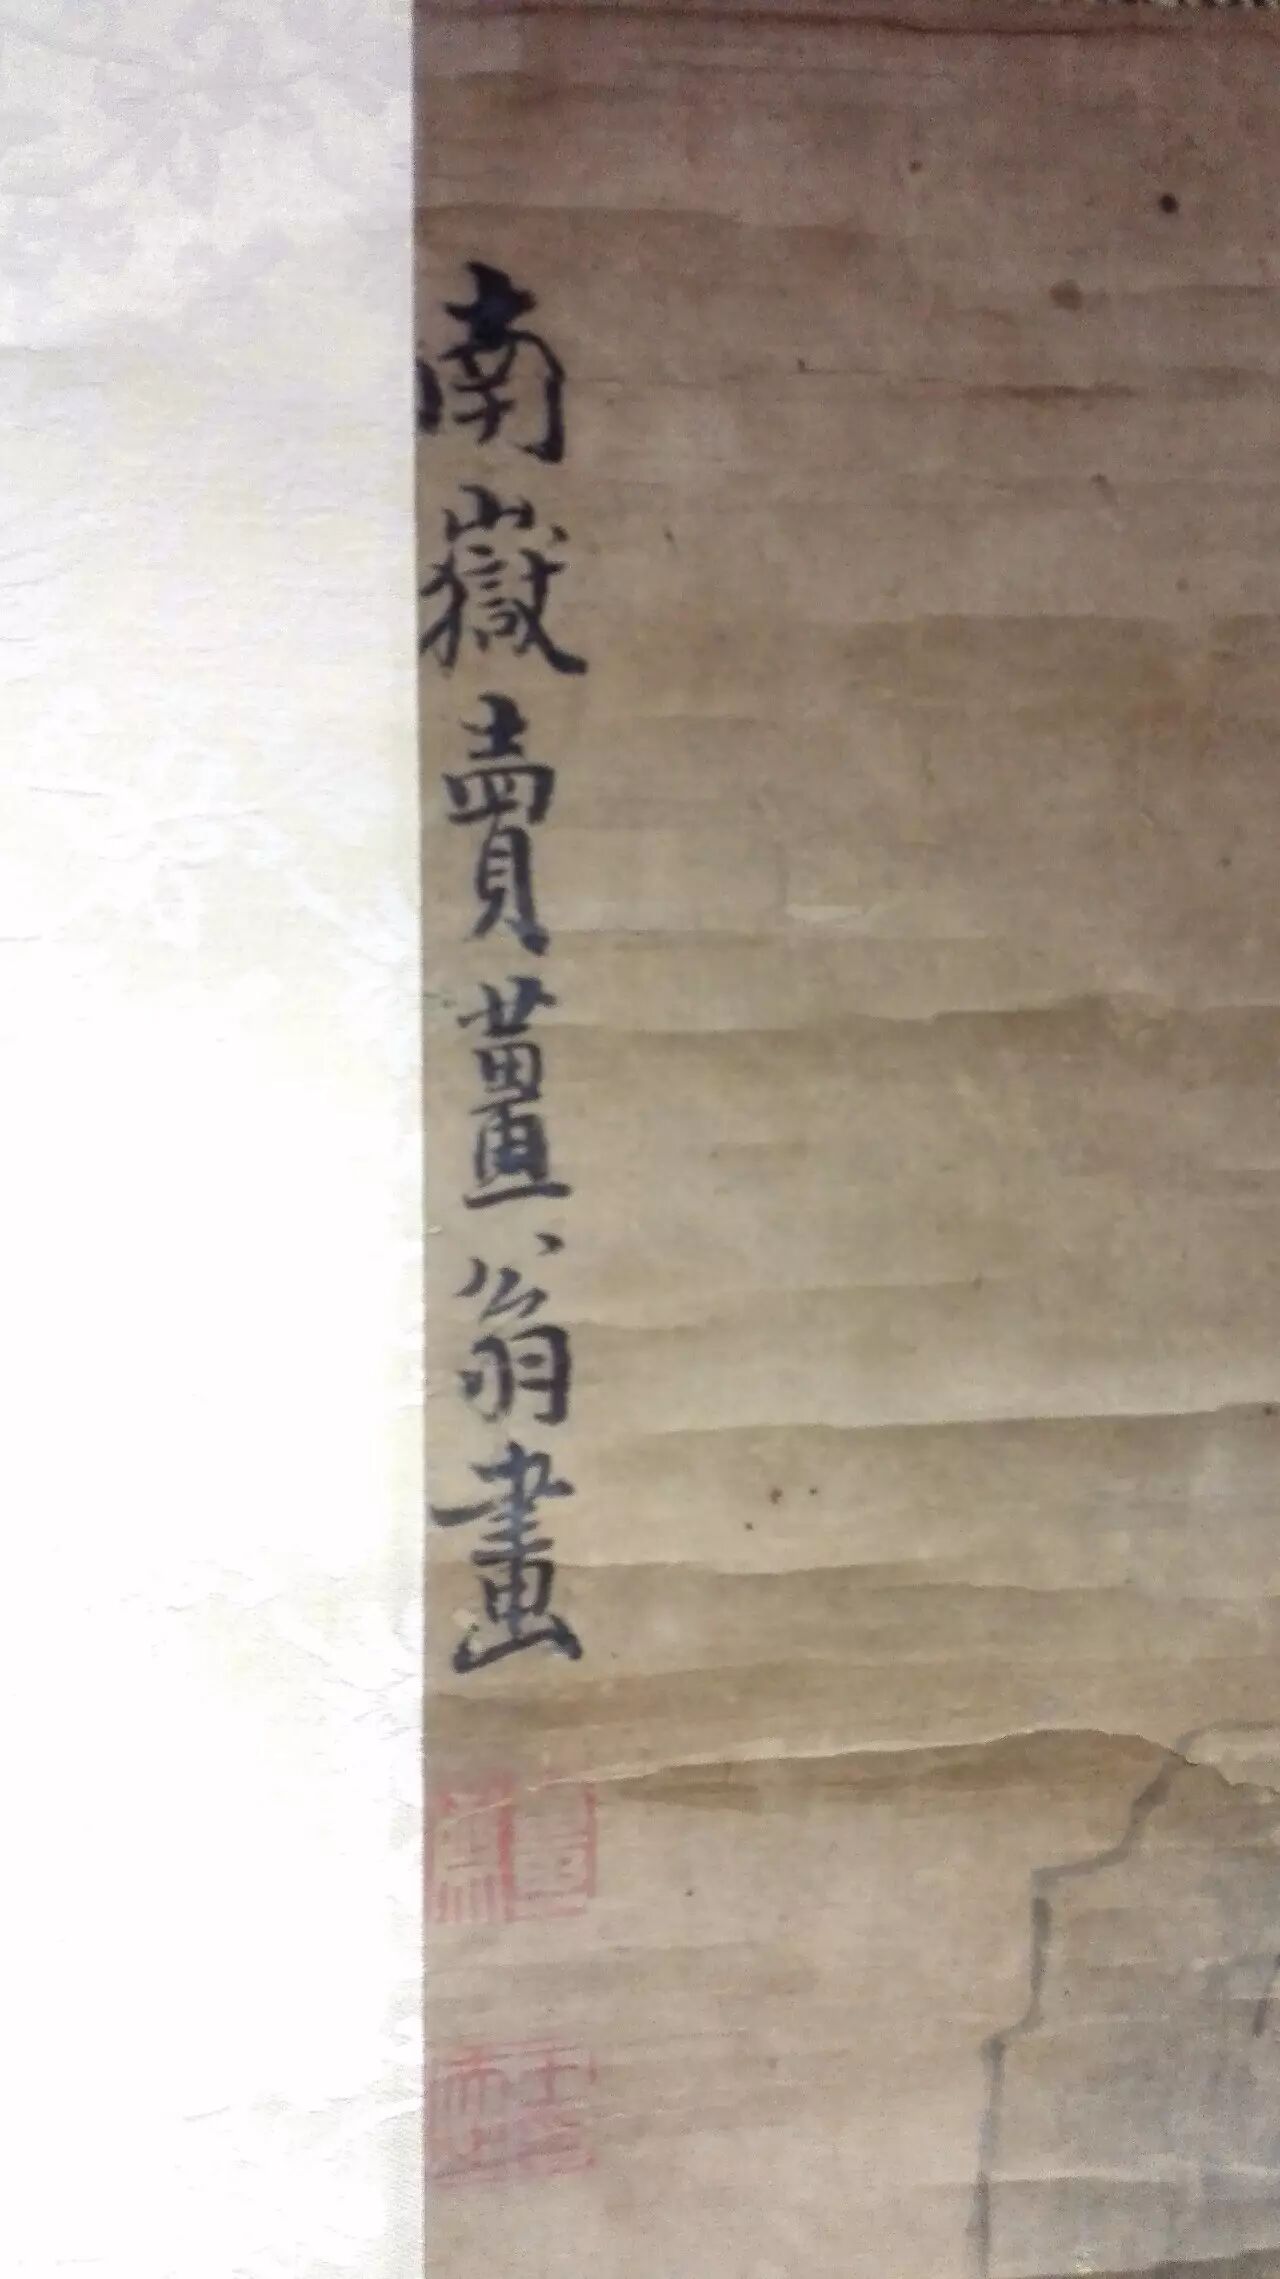 南嶽賣薑翁畫